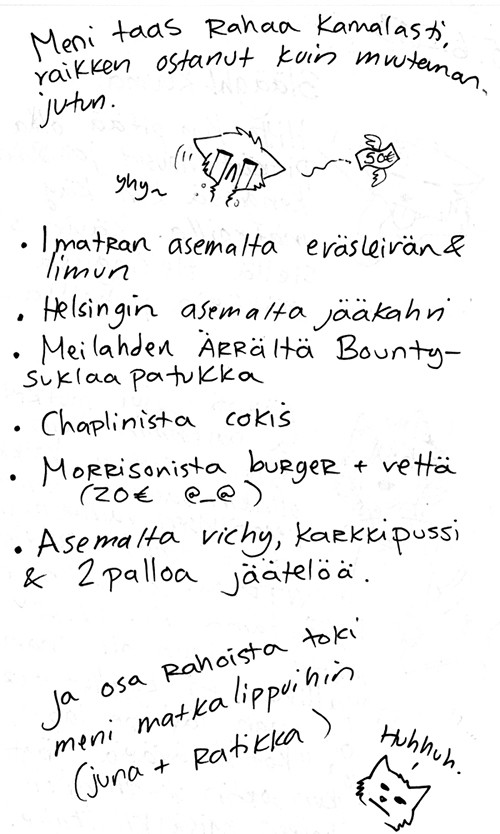 Meni taas Rahaa kamalasti,
vaikken ostanut kuin muutaman
jutun.
50€
yhy~
• Imatran asemalta eväsleivän &
limun
• Helsingin asemalta jääkahvi
• Meilahden ÄRRältä Bounty-
suklaapatukka
• Chaplinista cokis
• Morrisonista burger + vettä
(20€ @_@)
• Asemalta vichy, karkkipussi
& 2 palloa jäätelöä.
Ja osa rahoista toki
meni matkalippuihin
(juna + Ratikka)
Huhhuh.